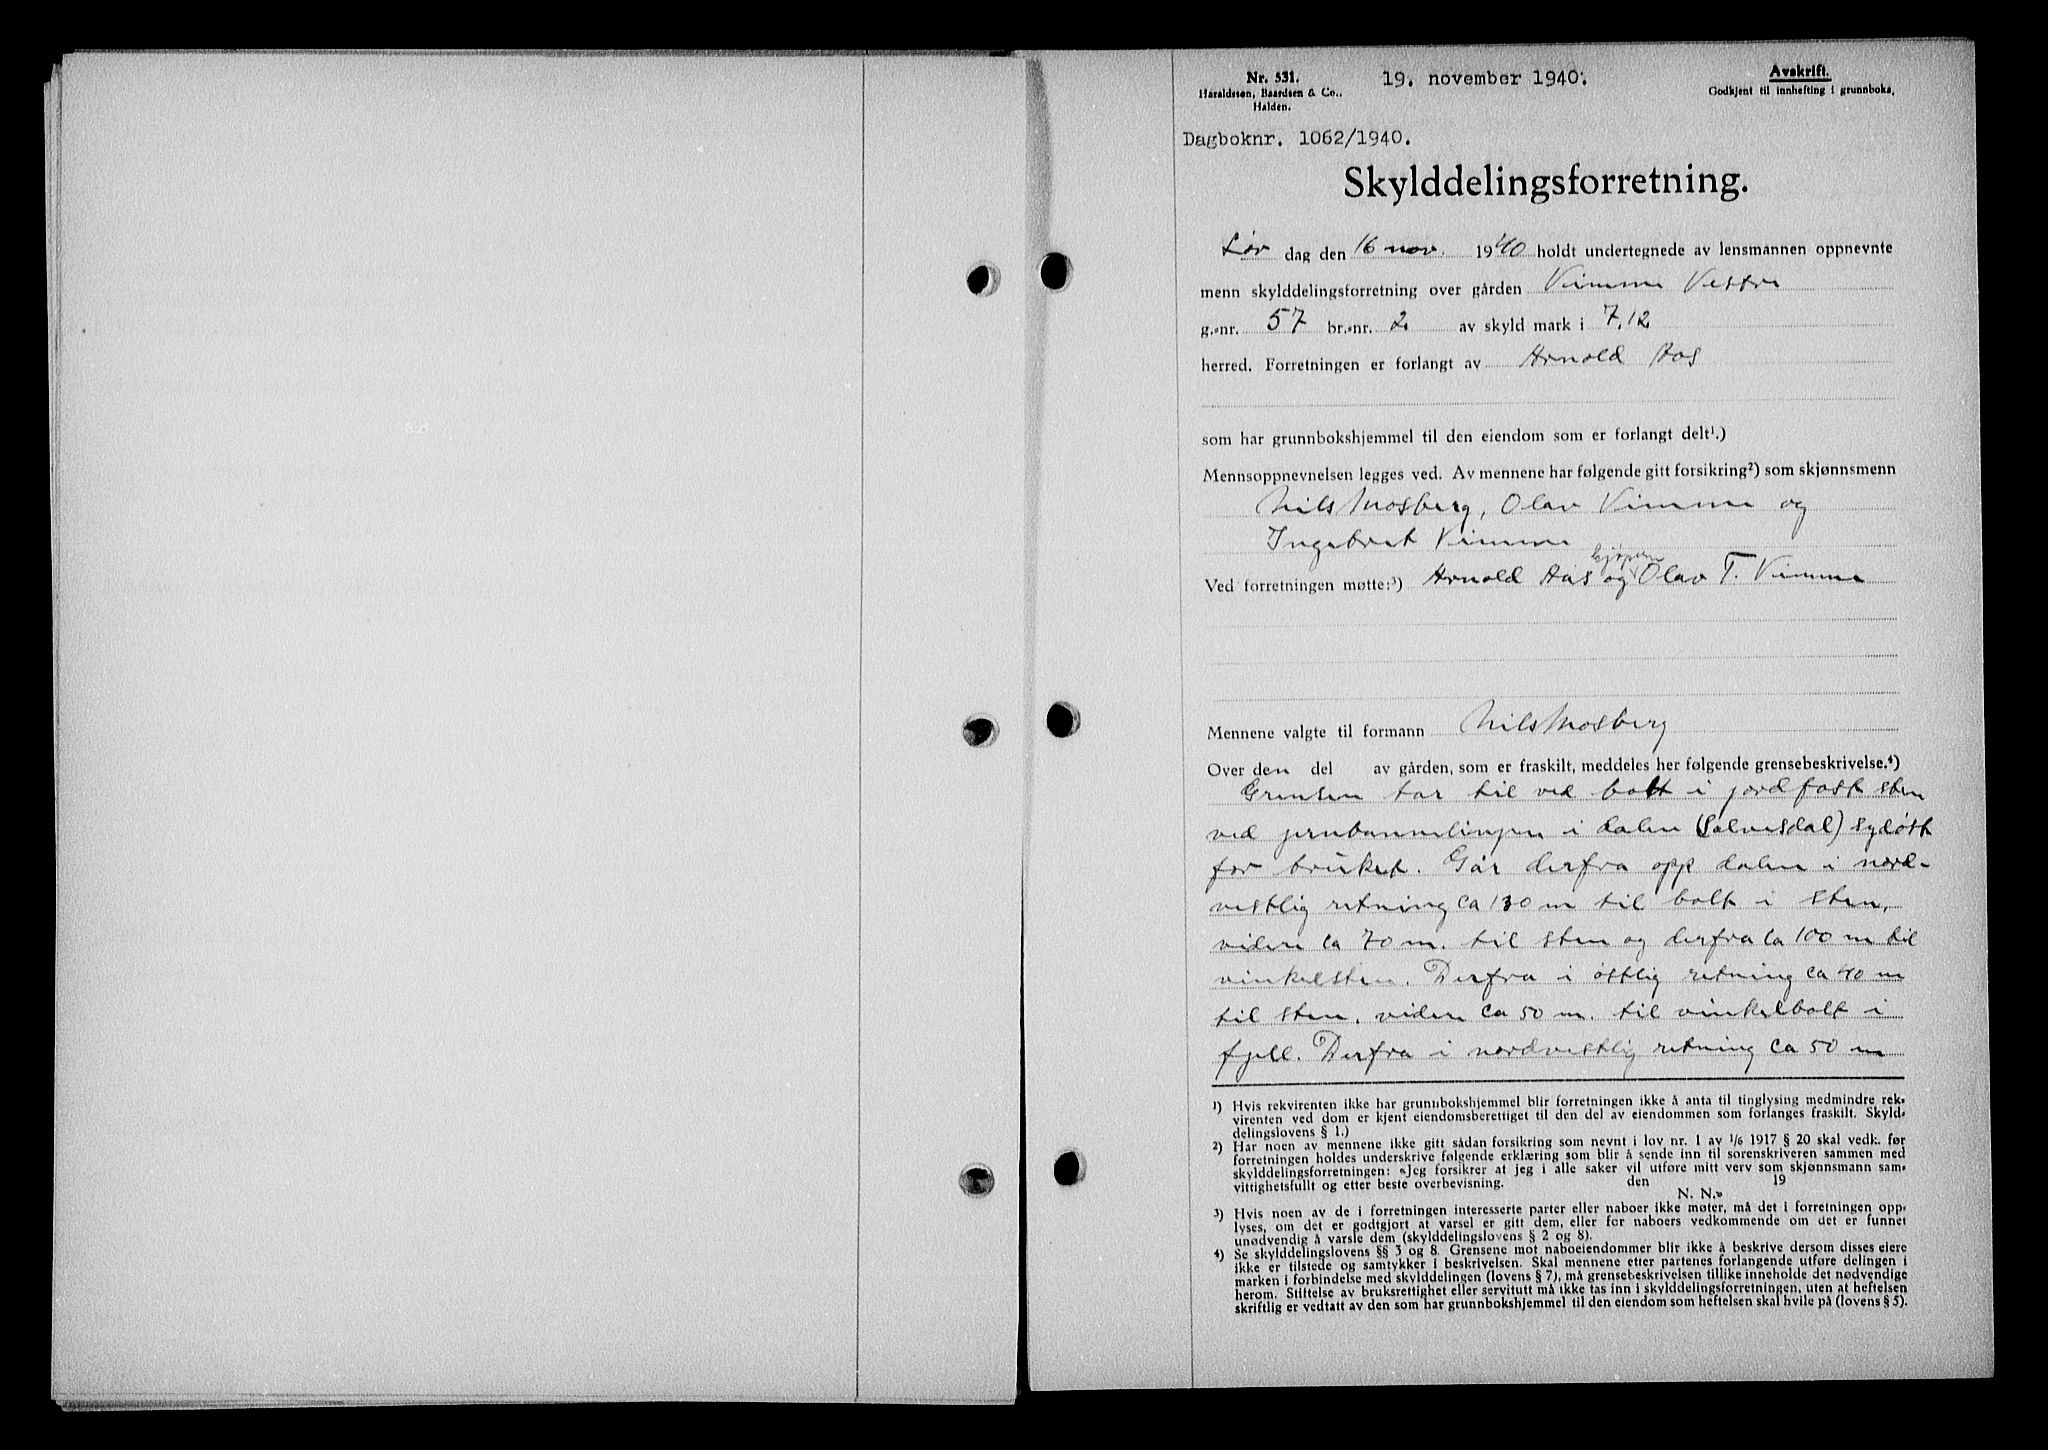 Nr. 531.
Haraldssen, Baardsen & Co.,
Halden.
19. november 1940.
Avskrift.
Godkjent til innhefting i grunnboka.
Dagboknr. 1062/1940.
Skylddelingsforretning.
Lør dag den 16 nov. 1940 holdt undertegnede av lensmannen oppnevnte
menn skylddelingsforretning over gården Vimme Vestre
g.-nr. 57 br.-nr. 2 av skyld mark i 7,12
herred. Forretningen er forlangt av Arnold Aas
som har grunnbokshjemmel til den eiendom som er forlangt delt¹.)
Mennsoppnevnelsen legges ved. Av mennene har følgende gitt forsikring²) som skjønnsmenn
Nils Mosberg, Olav Vimme og
Ingebret Vimme
kjøperen
Ved forretningen møtte:³) Arnold Aas og Olav T. Vimme
Mennene valgte til formann Nils Mosberg
Over den del av gården, som er fraskilt, meddeles her følgende grensebeskrivelse.⁴)
Grensen tar til ved bolt i jordfast sten
ved i dalen (Salvesdal) sydøst
for bruket. Går derfra opp dalen i nord-
vestlig retning ca 130 m til bolt i sten,
videre ca 70 m. til sten og derfra ca 100 m til
vinkelsten. Derfra i østlig retning ca 40 m
til sten, videre ca 50 m. til vinkelbolt i
fjell. Derfra i nordvestlig retning ca 50 m
¹) Hvis rekvirenten ikke har grunnbokshjemmel blir forretningen ikke å anta til tinglysing medmindre rek-
virenten ved dom er kjent eiendomsberettiget til den del av eiendommen som forlanges fraskilt. Skyld-
delingslovens § 1.)
²) Har noen av mennene ikke gitt sådan forsikring som nevnt i lov nr. 1 av 1/6 1917 § 20 skal vedk. før
forretningen holdes underskrive følgende erklæring som blir å sende inn til sorenskriveren sammen med
skylddelingsforretningen: «Jeg forsikrer at jeg i alle saker vil utføre mitt verv som skjønnsmann sam-
vittighetsfullt og etter beste overbevisning. den 19
N. N.»
³) Hvis noen av de i forretningen interesserte parter eller naboer ikke møter, må det i forretningen opp-
lyses, om det er godtgjort at varsel er gitt dem, eller for naboers vedkommende om det er funnet
unødvendig å varsle dem (skylddelingslovens § 2 og 8).
⁴) Se skylddelingslovens §§ 3 og 8. Grensene mot naboeiendommer blir ikke å beskrive dersom disses eiere
ikke er tilstede og samtykker i beskrivelsen. Skal mennene etter partenes forlangende utføre delingen i
marken i forbindelse med skylddelingen (lovens § 7), må grensebeskrivelsen tillike inneholde det nødvendige
herom. Stiftelse av bruksrettighet eller servitutt må ikke tas inn i skylddelingsforretningen, uten at heftelsen
skriftlig er vedtatt av den som har grunnbokshjemmel til den eiendom som heftelsen skal hvile på (lovens § 5).